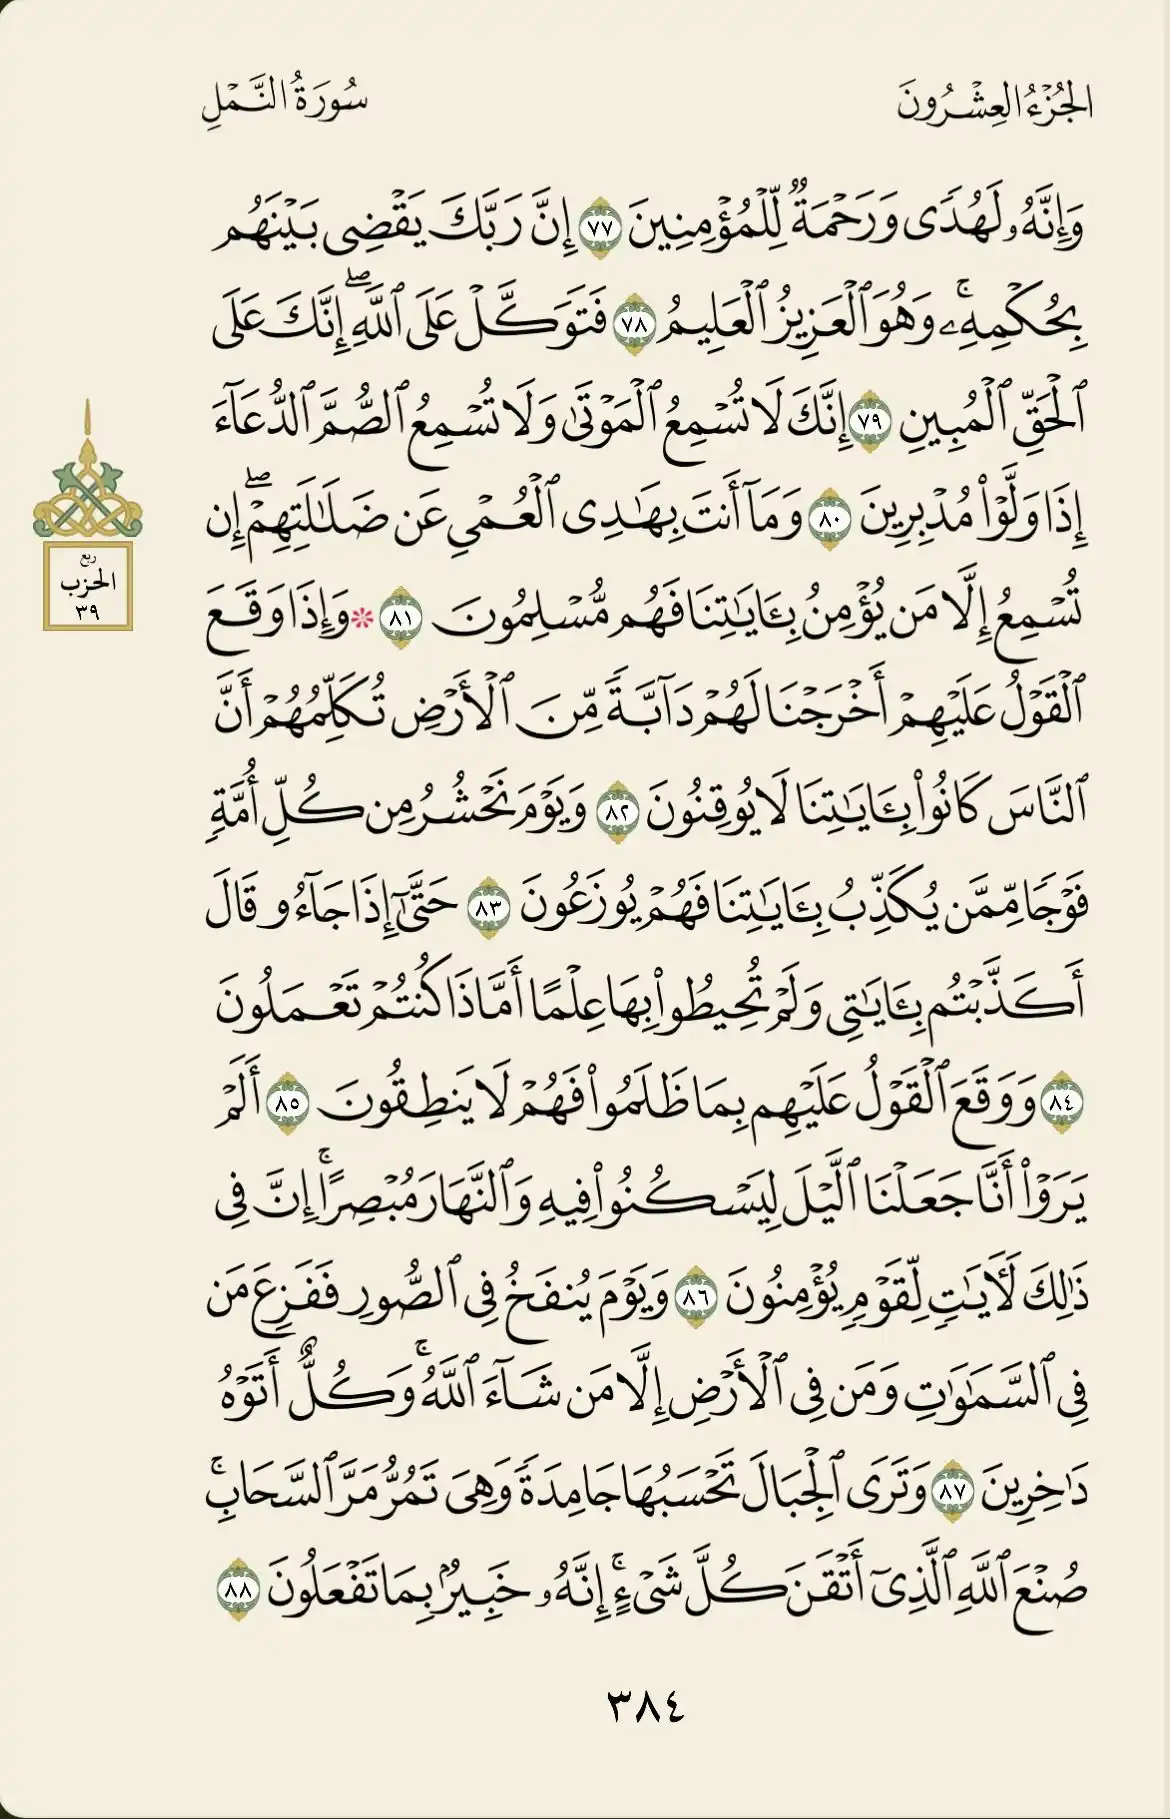 الجُزْءُ العِشْرُونَ
سُورَةُ النَّمْلِ
وَإِنَّهُۥ لَهُدًى وَرَحْمَةٌ لِّلْمُؤْمِنِينَ ٧٧ إِنَّ رَبَّكَ يَقْضِى بَيْنَهُم
بِحُكْمِهِۦۚ وَهُوَ ٱلْعَزِيزُ ٱلْعَلِيمُ ٧٨ فَتَوَكَّلْ عَلَى ٱللَّهِۖ إِنَّكَ عَلَى
ٱلْحَقِّ ٱلْمُبِينِ ٧٩ إِنَّكَ لَا تُسْمِعُ ٱلْمَوْتَىٰ وَلَا تُسْمِعُ ٱلصُّمَّ ٱلدُّعَآءَ
إِذَا وَلَّوْا۟ مُدْبِرِينَ ٨٠ وَمَآ أَنتَ بِهَٰدِى ٱلْعُمْىِ عَن ضَلَٰلَتِهِمْۖ إِن
تُسْمِعُ إِلَّا مَن يُؤْمِنُ بِـَٔايَٰتِنَا فَهُم مُّسْلِمُونَ ٨١ * وَإِذَا وَقَعَ
ربع
الحزب
٣٩
ٱلْقَوْلُ عَلَيْهِمْ أَخْرَجْنَا لَهُمْ دَآبَّةً مِّنَ ٱلْأَرْضِ تُكَلِّمُهُمْ أَنَّ
ٱلنَّاسَ كَانُوا۟ بِـَٔايَٰتِنَا لَا يُوقِنُونَ ٨٢ وَيَوْمَ نَحْشُرُ مِن كُلِّ أُمَّةٍ
فَوْجًا مِّمَّن يُكَذِّبُ بِـَٔايَٰتِنَا فَهُمْ يُوزَعُونَ ٨٣ حَتَّىٰٓ إِذَا جَآءُو قَالَ
أَكَذَّبْتُم بِـَٔايَٰتِى وَلَمْ تُحِيطُوا۟ بِهَا عِلْمًا أَمَّاذَا كُنتُمْ تَعْمَلُونَ
٨٤ وَوَقَعَ ٱلْقَوْلُ عَلَيْهِم بِمَا ظَلَمُوا۟ فَهُمْ لَا يَنطِقُونَ ٨٥ أَلَمْ
يَرَوْا۟ أَنَّا جَعَلْنَا ٱلَّيْلَ لِيَسْكُنُوا۟ فِيهِ وَٱلنَّهَارَ مُبْصِرًاۚ إِنَّ فِى
ذَٰلِكَ لَـَٔايَٰتٍ لِّقَوْمٍ يُؤْمِنُونَ ٨٦ وَيَوْمَ يُنفَخُ فِى ٱلصُّورِ فَفَزِعَ مَن
فِى ٱلسَّمَٰوَٰتِ وَمَن فِى ٱلْأَرْضِ إِلَّا مَن شَآءَ ٱللَّهُۚ وَكُلٌّ أَتَوْهُ
دَٰخِرِينَ ٨٧ وَتَرَى ٱلْجِبَالَ تَحْسَبُهَا جَامِدَةً وَهِىَ تَمُرُّ مَرَّ ٱلسَّحَابِۚ
صُنْعَ ٱللَّهِ ٱلَّذِىٓ أَتْقَنَ كُلَّ شَىْءٍۚ إِنَّهُۥ خَبِيرٌۢ بِمَا تَفْعَلُونَ ٨٨
٣٨٤